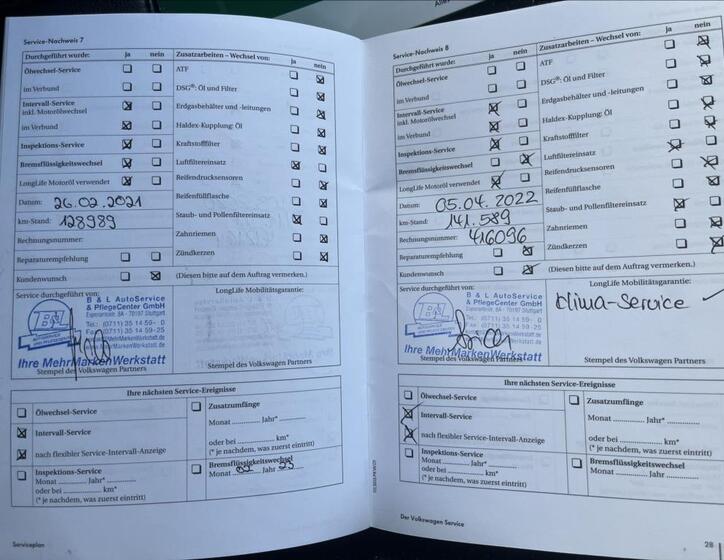 Service-Nachweis 7
Durchgeführt wurde: ja nein
Ölwechsel-Service
im Verbund
Intervall-Service
inkl. Motorölwechsel
im Verbund
Inspektions-Service
Bremsflüssigkeitswechsel
LongLife Motoröl verwendet
Datum: 26.02.2021
km-Stand: 128989
Rechnungsnummer:
Reparaturempfehlung
Kundenwunsch
Zusatzarbeiten – Wechsel von: ja nein
ATF
DSG®: Öl und Filter
Erdgasbehälter und -leitungen
Haldex-Kupplung: Öl
Kraftstofffilter
Luftfiltereinsatz
Reifendrucksensoren
Reifenfüllflasche
Staub- und Pollenfiltereinsatz
Zahnriemen
Zündkerzen
(Diesen bitte auf dem Auftrag vermerken.)
Service durchgeführt von:
B & L AutoService
& PflegeCenter GmbH
Tel.: (0711) 35 14 59- 0
Fax (0711) 35 14 59-25
Ihre MehrMarkenWerkstatt
Stempel des Volkswagen Partners
LongLife Mobilitätsgarantie:
Stempel des Volkswagen Partners
Ihre nächsten Service-Ereignisse
Ölwechsel-Service
Intervall-Service
nach flexibler Service-Intervall-Anzeige
Inspektions-Service
Monat ........... Jahr*...........
oder bei .............. km*
(* je nachdem, was zuerst eintritt)
Zusatzumfänge
Monat ........... Jahr*...........
oder bei .............. km*
(* je nachdem, was zuerst eintritt)
Bremsflüssigkeitswechsel
Monat 02 Jahr 23
Serviceplan
Service-Nachweis 8
Durchgeführt wurde: ja nein
Ölwechsel-Service
im Verbund
Intervall-Service
inkl. Motorölwechsel
im Verbund
Inspektions-Service
Bremsflüssigkeitswechsel
LongLife Motoröl verwendet
Datum: 05.04.2022
km-Stand: 141.589
Rechnungsnummer: 416096
Reparaturempfehlung
Kundenwunsch
Zusatzarbeiten – Wechsel von: ja nein
ATF
DSG®: Öl und Filter
Erdgasbehälter und -leitungen
Haldex-Kupplung: Öl
Kraftstofffilter
Luftfiltereinsatz
Reifendrucksensoren
Reifenfüllflasche
Staub- und Pollenfiltereinsatz
Zahnriemen
Zündkerzen
(Diesen bitte auf dem Auftrag vermerken.)
Service durchgeführt von:
B & L AutoService
& PflegeCenter GmbH
Tel.: (0711) 35 14 59- 0
Fax (0711) 35 14 59-25
Ihre MehrMarkenWerkstatt
Stempel des Volkswagen Partners
LongLife Mobilitätsgarantie:
Klima-Service ✓
Stempel des Volkswagen Partners
Ihre nächsten Service-Ereignisse
Ölwechsel-Service
Intervall-Service
nach flexibler Service-Intervall-Anzeige
Inspektions-Service
Monat ........... Jahr*...........
oder bei .............. km*
(* je nachdem, was zuerst eintritt)
Zusatzumfänge
Monat ........... Jahr*...........
oder bei .............. km*
(* je nachdem, was zuerst eintritt)
Bremsflüssigkeitswechsel
Monat ........... Jahr ...........
Der Volkswagen Service
28